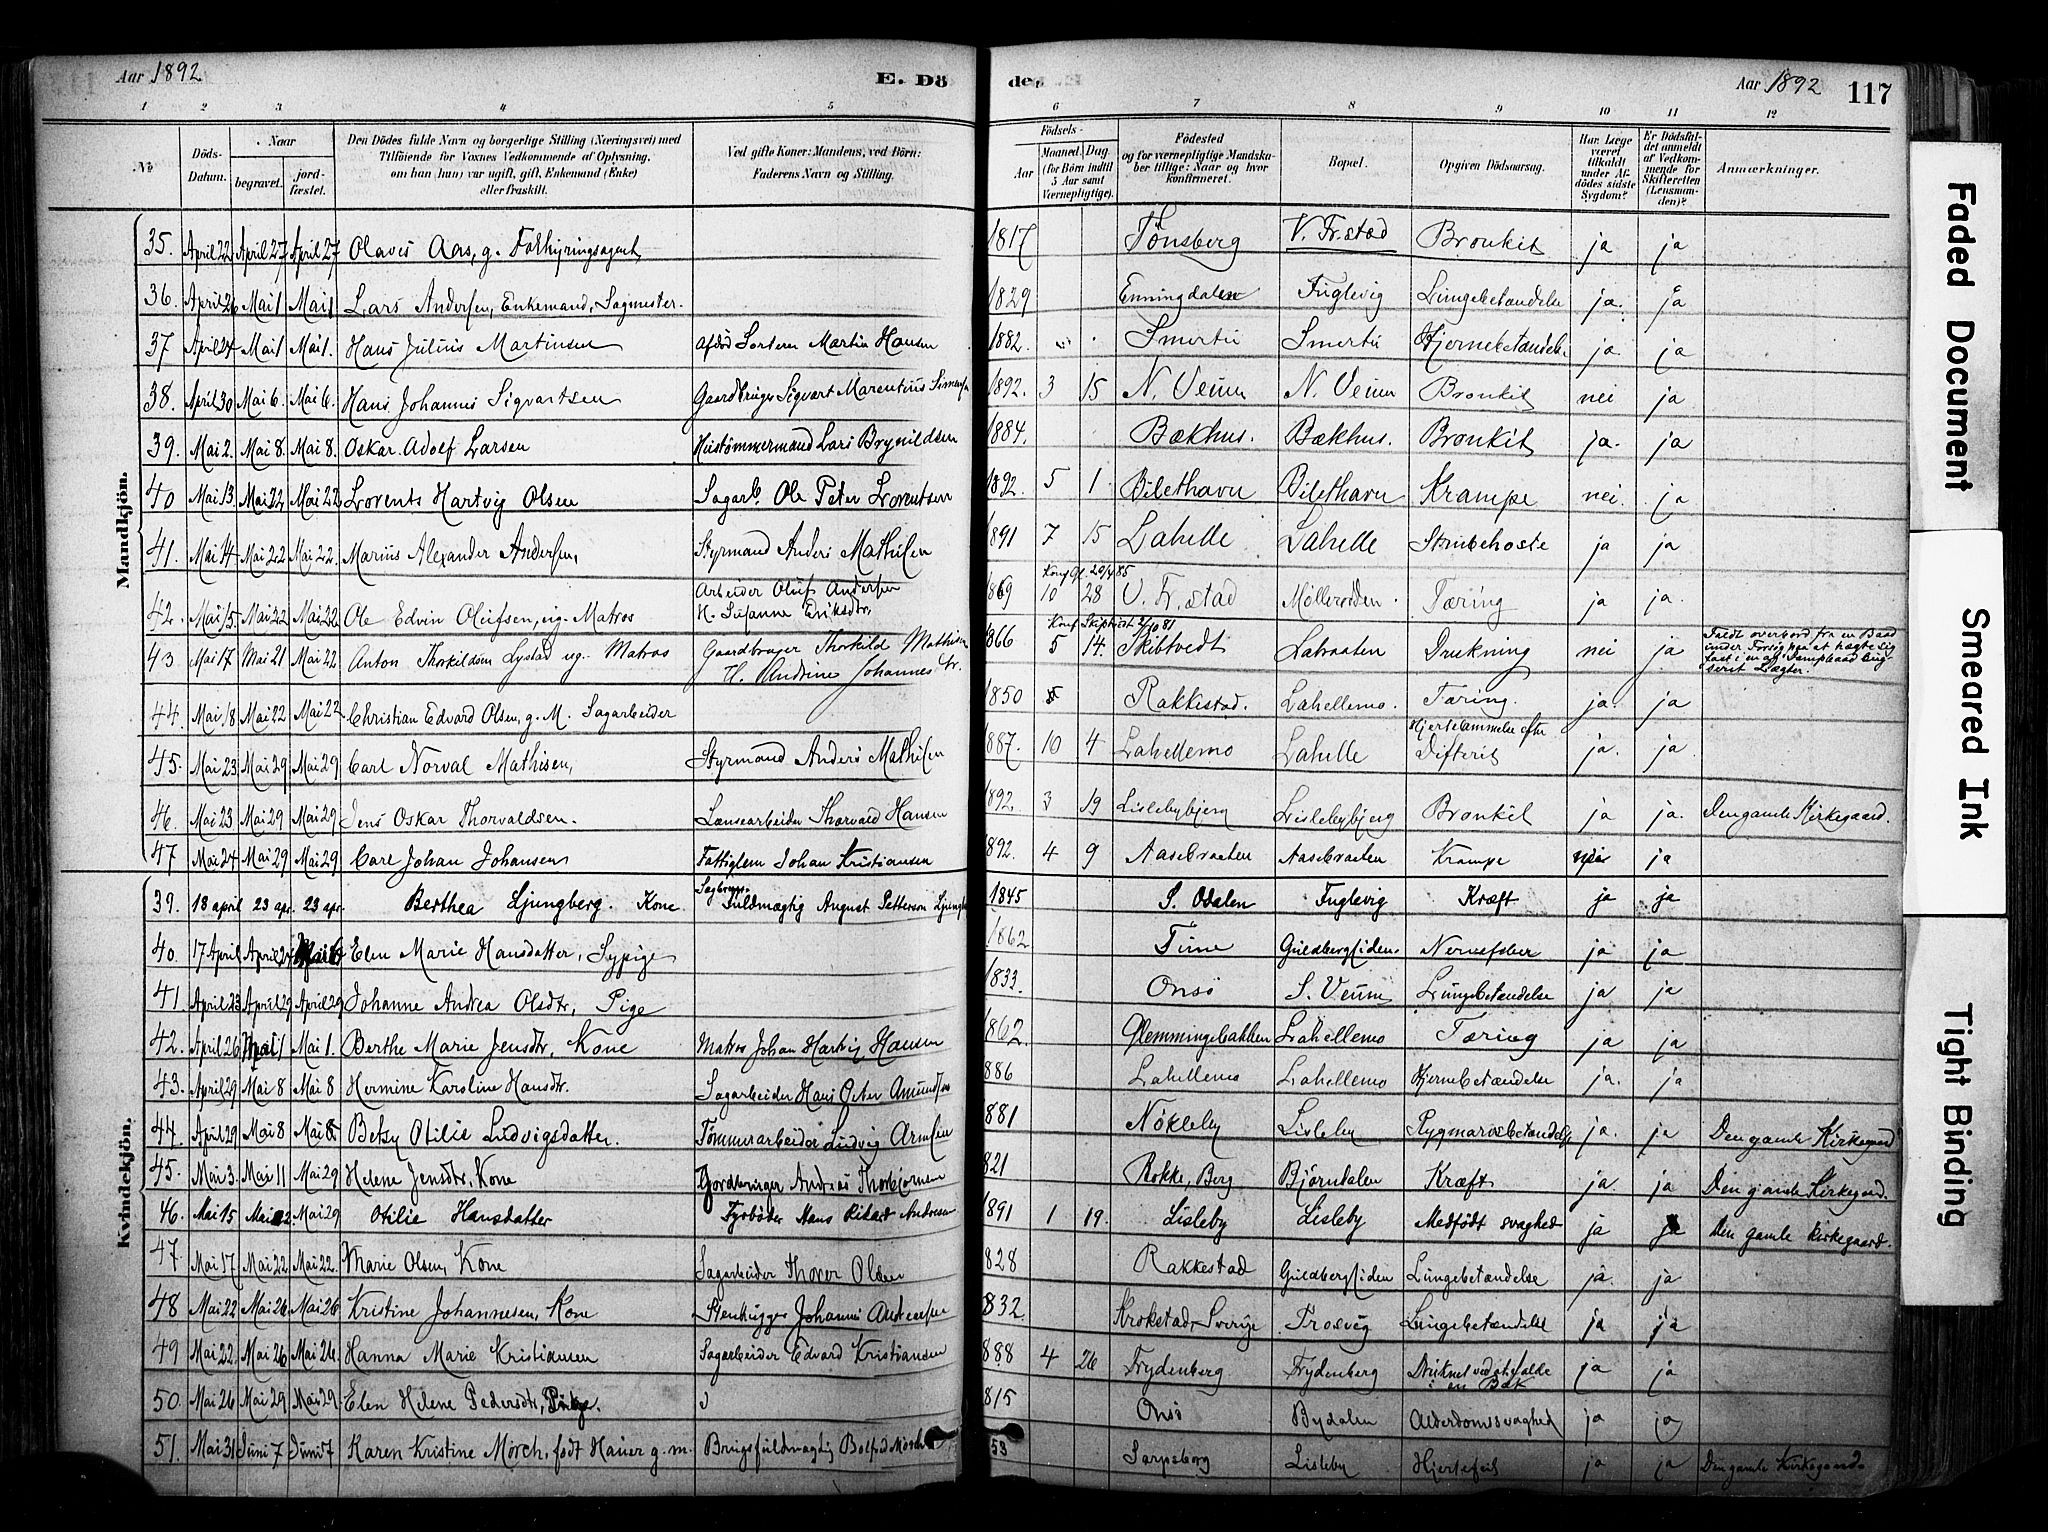 Aar 1892 E. Dö
de. Aar 1892 117
1 2 3 4 5 6 7 8 9 10 11 12
No. Döds-Datum. Naar begravet. jord-fæstet. Den Dödes fulde Navn og borgerlige Stilling (Næringsvei) med Tilföiende for Voxnes Vedkommende af Oplysning, om han (hun) var ugift, gift, Enkemand (Enke) eller fraskilt. Ved gifte Koner: Mandens, ved Börn: Faderens Navn og Stilling. Födsels- Aar Maaned. Dag (for Börn indtil 5 Aar samt Værnepligtige). Födested og for værnepligtige Mandskaber tillige: Naar og hvor konfirmeret. Bopæl. Opgiven Dödsaarsag. Har Læge været tilkaldt under Afdödes sidste Sygdom? Er Dödsfaldet anmeldt af Vedkommende for Skifteretten (Lensmanden)? Anmærkninger.
Mandkjön.
35. April 22 April 27 April 27 Olavus Aas, g. Forhyringsagent 1817 Tönsberg V. Fr.stad Bronkit ja ja
36. April 26 Mai 1 Mai 1 Lars Andersen, Enkemand, Sagmester. 1829 Enningdalen Fuglevig Lungebetændelse ja. ja
37 April 24 Mai 1 Mai 1. Hans Julius Martinsen Afdöd Sorterer Martin Hansen 1882. Smertu Smertu Hjernebetændelse ja. ja
38. April 30 Mai 6. Mai 6. Hans Johannes Sigvartsen Gaardbruger Sigvart Marentius Simensen 1892. 3 15 N. Veum N. Veum Bronkit nei ja
39. Mai 2. Mai 8. Mai 8. Oskar Adolf Larsen Hustömmermand Lars Brynildsen 1884. Bækhus. Bækhus. Bronkit ja. ja
40 Mai 13. Mai 22 Mai 22 Lorents Hartvig Olsen Sagarb. Ole Peter Lorentsen 1892. 5 1. Ôilethavn Ôilethavn Krampe nei. ja
41. Mai 14 Mai 22 Mai 22. Marius Alexander Andersen, Styrmand Anders Mathisen 1891 7 15 Lahelle Lahelle Strubehoste ja ja
Konf Gl. 20/4 85
42. Mai 15. Mai 22 Mai 22 Ole Edvin Olufsen, ug. Matros Arbeider Oluf Andersen H. Susanne Eriksdtr. 1869 10 28 V. Fr.stad Möllerodden. Tæring ja ja.
Konf Skiptvedt 2/10 81
43. Mai 17 Mai 21 Mai 22 Anton Thorkildsen Lystad ug. Matros Gaardbruger Thorkild Mathisen H. Andrine Johannesdtr. 1866 5 14. Skibtvedt Labraaten Drukning nei ja Faldt overbord fra en Baad under Forsög paa at hægte sig fast i en af Dampbaad bugseret Lægter.
44. Mai 18 Mai 22 Mai 22 Christian Edvard Olsen, g. M. Sagarbeider 1850 Rakkestad. Lahellemo. Tæring. ja. ja
45. Mai 23 Mai 29 Mai 29 Carl Norval Mathisen, Styrmand Anders Mathisen 1887. 10 4 Lahellemo Lahelle Hjertelammelse efter Difterit ja. ja.
46. Mai 23 Mai 29 Mai 29 Jens Oskar Thorvaldsen. Lænsearbeider Thorvald Hansen 1892. 3 19 Lislebybjerg Lislebybjerg Bronkit ja ja. Den gamle Kirkegaard.
47 Mai 24 Mai 29 Mai 29 Carl Johan Johansen Fattiglem Johan Kristiansen 1892. 4 9 Aasebraaten Aasebraaten Krampe nei ja
Kvindekjön.
39. 18 april 23 apr. 23 apr. Berthea Ljungberg. Kone Sagbrugs-Fuldmægtig August Petterson Ljungberg 1845 S. Odalen Fuglevig Kræft ja ja
40. 17 April April 24 Elen Marie Hansdatter, Sypige 1862. Tune Guldbergsiden. Nervefeber ja ja
41 April 23 April 29 April 29 Johanne Andrea Olsdtr, Pige 1833. Onsö S. Veum Lungebetændelse ja ja
42. April 26 Mai 1 Mai 1. Berthe Marie Jensdtr, Kone Matros Johan Hartvig Hansen 1862. Glemmingebakken Lahellemo Tæring ja ja
43. April 29 Mai 8 Mai 8 Hermine Karoline Hansdtr. Sagarbeider Hans Peter Amundsen 1886 Lahellemo Lahellemo Hjernebetændelse ja. ja
44. April 29 Mai 8 Mai 8. Betsy Otilie Ludvigsdatter. Tömmerarbeider Ludvig Arnesen 1881 Nökleby Lisleby Rygmarvsbetændelse ja. ja Den gamle Kirkegaard
45. Mai 3. Mai 11 Mai 29 Helene Jensdtr, Kone Gordbruger Andreas Thorbjörnsen 1821 Rokke, Berg Björndalen Kræft ja. ja Den gamle Kirkegaard.
46. Mai 15 Mai 22 Mai 29 Otilie Hansdatter Fyrböder Hans Rikard Andresen 1891 1 19. Lisleby Lisleby Medfödt svaghed ja ja Den gamle Kirkegaard.
47. Mai 17 Mai 22 Mai 22. Marie Olsen, Kone Sagarbeider Thorer Olsen 1828 Rakkestad Guldbergsiden Lungebetændelse ja. ja
48 Mai 22 Mai 26 Mai 26 Kristine Johannesen, Kone Stenhugger Johannes Andersen 1832. Krokstad, Sverige Trosvig Lungebetændelse ja ja
49 Mai 22. Mai 26 Mai 26. Hanna Marie Kristiansen Sagarbeider Edvard Kristiansen 1888 4 26 Frydenberg Frydenberg Druknet ved at falde i en Bæk ja ja
50. Mai 26 Mai 29 Mai 29. Elen Helene Pedersdtr, Pige. 1815 Onsö Bydalen Alderdomssvaghed ja ja
51. Mai 31 Juni 7 Juni 7 Karen Kristine Mörch, född Hauer g. m. Brugsfuldmægtig Mörch 53 Sarpsborg Lisleby Hjertefeil ja ja Den gamle Kirkegaard.
Faded Document
Smeared Ink
Tight Binding